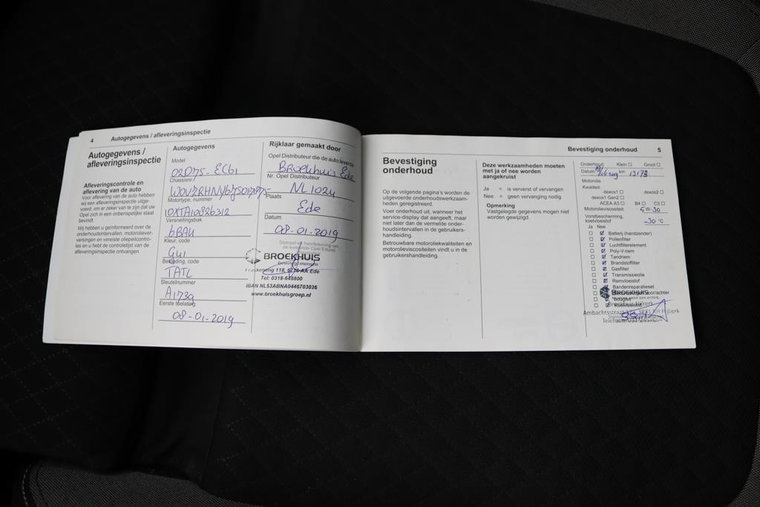 4 Autogegevens / afleveringsinspectie
Autogegevens /
afleveringsinspectie
Aflevercontrole en
aflevering van de auto
Voor aflevering van de auto hebben
wij een afleveringsinspectie uitge-
voerd, om er zeker van te zijn dat uw
Opel zich in een onberispelijke staat
bevindt.
Wij hebben u geïnformeerd over de
onderhoudsintervallen, motoroliever-
versingen en vereiste oliepeilcontro-
les en u hebt de controlelijst van de
afleveringsinspectie ontvangen.
Autogegevens
Model
Chassisnr.
Motortype, nummer
Versnellingsbak
Kleur, code
GUI
Bekleding, code
TATL
Sleutelnummer
Eerste toelating
08-01-2019
Rijklaar gemaakt door
Opel Distributeur die de auto levert
Broekhuis Ede
Nr. Opel Distributeur
NL1024
Plaats
Ede
Datum
08-01-2019
BROEKHUIS
Tel: 0318-648800
www.broekhuisgroep.nl
Bevestiging onderhoud 5
Bevestiging
onderhoud
Op de volgende pagina's worden de
uitgevoerde onderhoudswerkzaam-
heden geregistreerd.
Voer onderhoud uit, wanneer het
service-display dat aangeeft, maar
niet later dan de vermelde onder-
houdsintervallen in de gebruikers-
handleiding.
Betrouwbare motoroliekwaliteiten en
motorolieviscositeiten vindt u in de
gebruikershandleiding.
Deze werkzaamheden moeten
met ja of nee worden
aangekruist
Ja = is ververst of vervangen
Nee = geen vervanging nodig
Opmerking
Vastgelegde gegevens mogen niet
worden gewijzigd.
Onderhoud: Klein Groot
Datum km 13178
Motorolie
Kwaliteit:
dexos1 dexos2
dexos1 Gen2
ACEA A5 B4 C3
Motorolieviscositeit: 5W-30
Vorstbescherming,
koelvloeistof -30 °C
Ja Nee
Batterij (handzender)
Pollenfilter
Luchtfilterelement
Poly-V-riem
Tandriem
Brandstoffilter
Gasfilter
Transmissieolie
Remvloeistof
Bandenreparatieset
BROEKHUIS